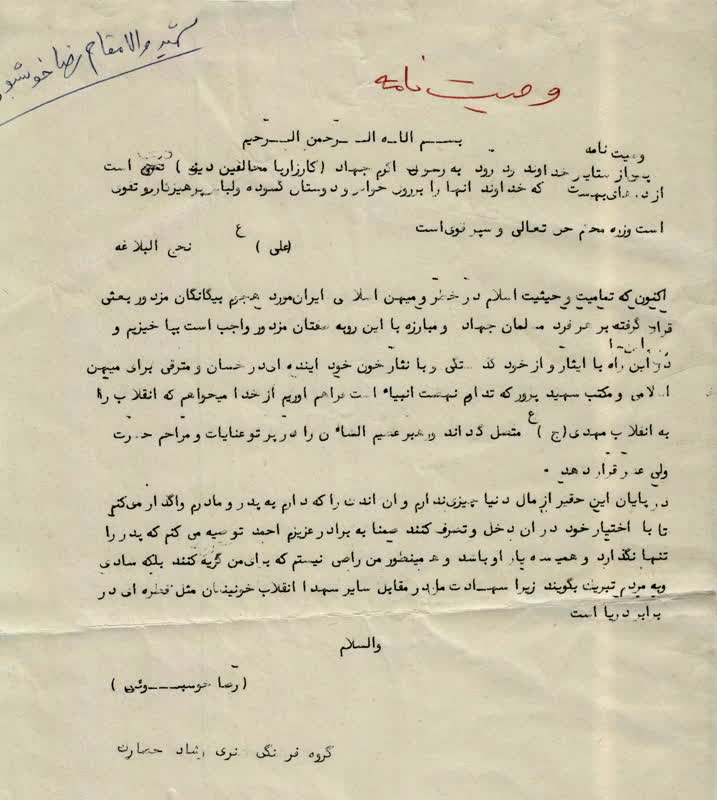 شهید والامقام رضا خوشبو
وصیت نامه
بسم الله الرحمن الرحیم
وصیت نامه
خداوند درود به رسول اکرم جهاد (کارزار با مخالفین دین) است
از بهشت که خداوند انها را بر روی دوستان گشوده ولباس پرهیزکاری تقوی
است وزره محکم حق تعالی و سپر قوی است
(علی ع) نهج البلاغه
اکنون که تمامیت و حیثیت اسلام در خطر و میهن اسلامی ایران مورد هجوم بیگانگان مزدور بعثی
قرار گرفته بر هر فرد مسلمان جهاد و مبارزه با این روبه صفتان مزدور واجب است بپا خیزیم و
در این راه با ایثار و از خود گذشتگی و با نثار خون خود اینده ای درخشان و مترقی برای میهن
اسلامی و مکتب شهید پرور که تداوم نهضت انبیاء است فراهم اوریم از خدا میخواهم که انقلاب را
به انقلاب مهدی (عج) متصل گرداند و رهبر عظیم الشان را در پرتو عنایات و مراحم حضرت
ولی عصر قرار دهد .
در پایان این حقیر از مال دنیا چیزی ندارم و ان اندک را که دارم به پدر و مادرم واگذار می کنم
تا با اختیار خود در ان دخل و تصرف کنند ضمنا به برادر عزیزم احمد توصیه می کنم که پدر را
تنها نگذارد و همیشه یار او باشد و همینطور من راضی نیستم که برای من گریه کنند بلکه شادی
وبه مردم تبریک بگویند زیرا شهادت ما در مقابل سایر شهدا انقلاب خونینمان مثل قطره ای در
برابر دریا است
والسلام
(رضا خوشبوئی)
گروه فرهنگی هنری